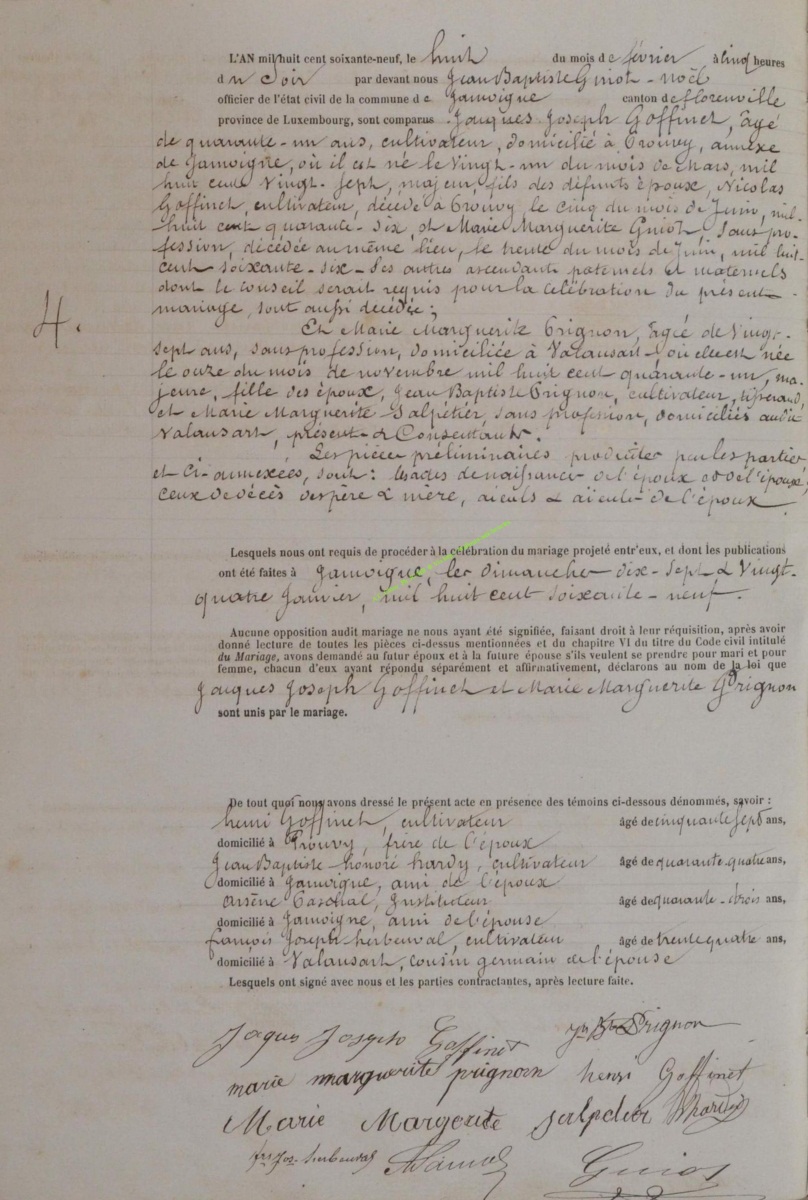 L'AN mil huit cent soixante-neuf, le huit du mois de février à cinq heures
du Soir par devant nous Jean Baptiste Guiot-Noël
officier de l'état civil de la commune de Jamoigne canton de florenville
province de Luxembourg, sont comparus Jacques Joseph Goffinet, âgé
de quarante-un ans, cultivateur, domicilié à Prouvy, annexe
de Jamoigne, où il est né le Vingt-un du mois de Mars, mil
huit cent Vingt-Sept, majeur, fils des défunts époux, Nicolas
Goffinet, cultivateur, décédé à Prouvy le cinq du mois de Juin, mil-
huit cent quarante-Six, et Marie Marguerite Guiot, Sans pro-
fession, décédée au même lieu, le trente du mois de Juin, mil huit-
cent Soixante-Six - Ses autres ascendants paternels et maternels
dont le conseil serait requis pour la célébration du présent
mariage, sont aussi décédés;
4.
Et Marie Marguerite Prignon, âgée de Vingt-
sept ans, sans profession, domiciliée à Valansart, où elle est née
le onze du mois de novembre mil huit cent quarante-un, ma-
jeure, fille des époux, Jean Baptiste Prignon, cultivateur,
et Marie Marguerite Salpétier, sans profession, domiciliés audit
Valansart, présents & Consentants.
Les pièces préliminaires produites par les parties
et ci-annexées, sont: les actes de naissance de l'époux et de l'épouse,
ceux de décès des père & mère, aïeuls & aïeules de l'époux.
Lesquels nous ont requis de procéder à la célébration du mariage projeté entr'eux, et dont les publications
ont été faites à Jamoigne, les Dimanches dix-Sept & Vingt-
quatre Janvier, mil huit cent soixante-neuf.
Aucune opposition audit mariage ne nous ayant été signifiée, faisant droit à leur réquisition, après avoir
donné lecture de toutes les pièces ci-dessus mentionnées et du chapitre VI du titre du Code civil intitulé
du Mariage, avons demandé au futur époux et à la future épouse s'ils veulent se prendre pour mari et pour
femme, chacun d'eux ayant répondu séparément et affirmativement, déclarons au nom de la loi que
Jacques Joseph Goffinet et Marie Marguerite Prignon
sont unis par le mariage.
De tout quoi nous avons dressé le présent acte en présence des témoins ci-dessous dénommés, savoir :
henri Goffinet, cultivateur âgé de cinquante Sept ans,
domicilié à Prouvy, frère de l'époux
Jean Baptiste-honoré hardy, cultivateur âgé de quarante-quatre ans,
domicilié à Jamoigne, ami de l'époux
arsène Paschal, Instituteur âgé de quarante-trois ans,
domicilié à Jamoigne, ami de l'épouse
françois Joseph herbeuval, cultivateur âgé de trente quatre ans,
domicilié à Valansart, cousin germain de l'épouse
Lesquels ont signé avec nous et les parties contractantes, après lecture faite.
Jaque Joseph Goffinet Jn Bte Prignon
marie marguerite prignon henri Goffinet
Marie Margerite hardy
frs Jos. herbeuval Guiot